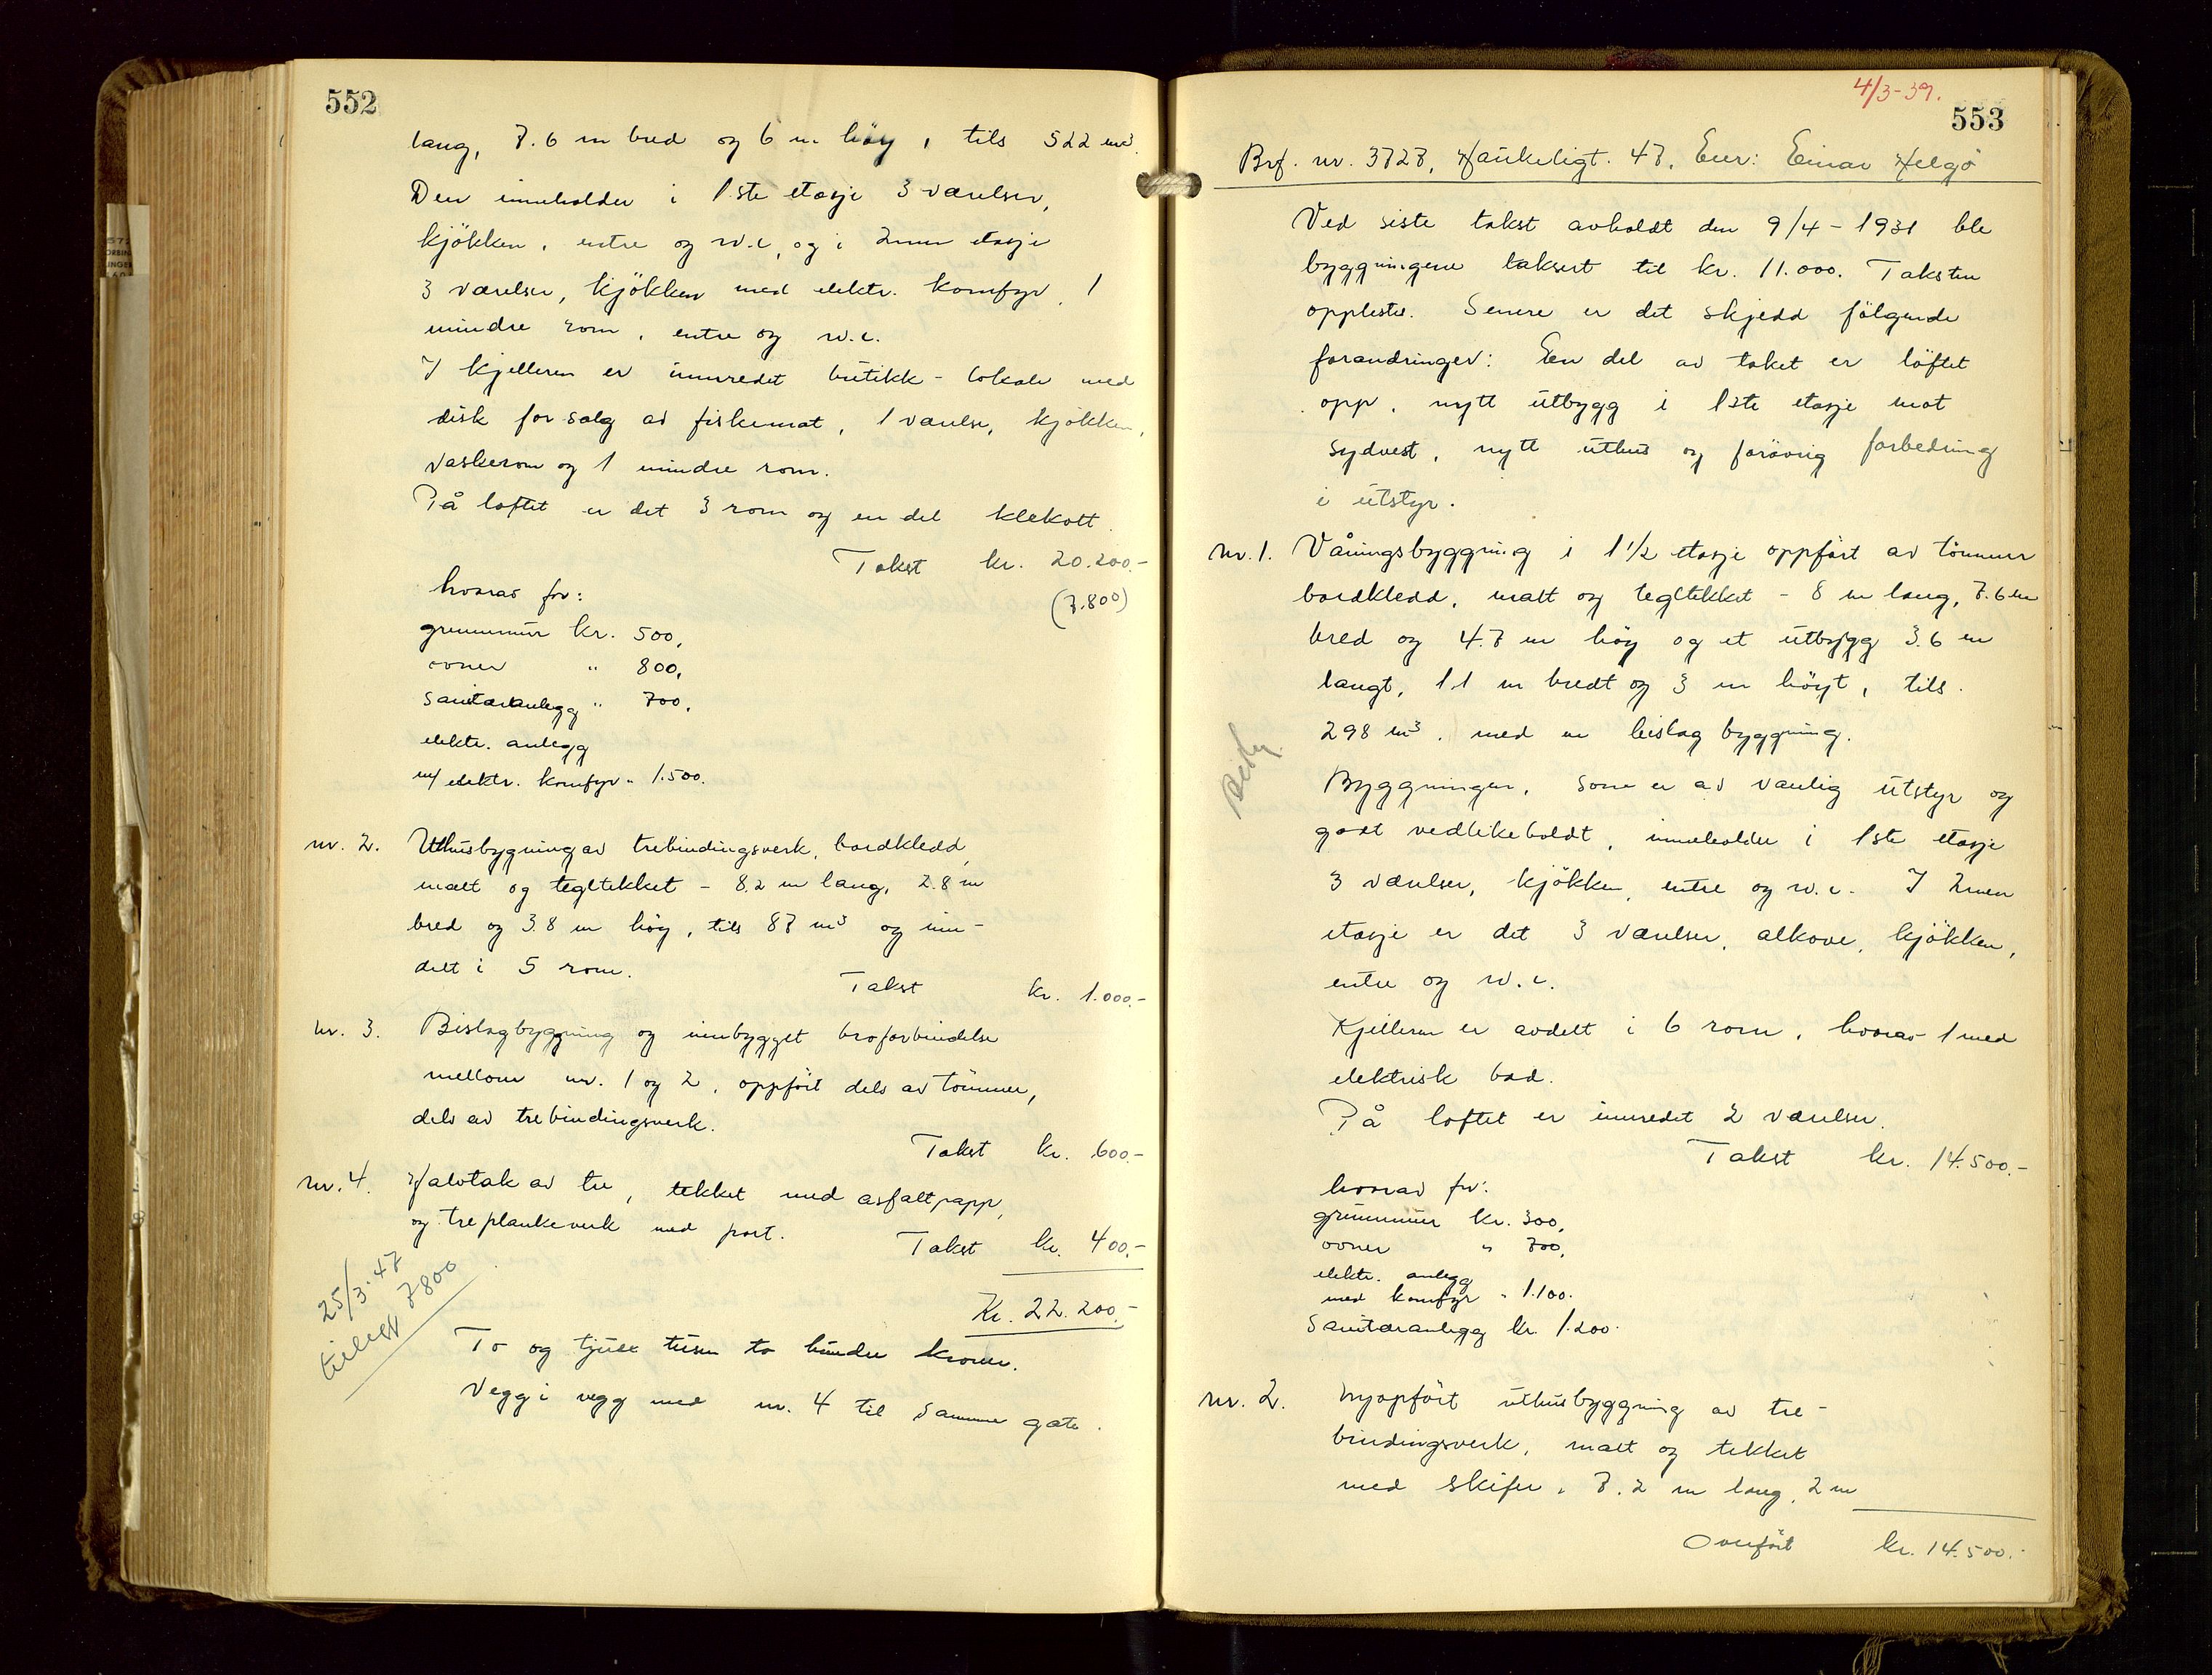 552
lang, 7.6 m bred og 6 m høy, tils 522 m³.
Den inneholder i 1ste etasje 3 værelser,
kjökken, entre og w.c, og i 2nen etasje
3 værelser, kjökken med elektr. komfyr, 1
mindre rom, entre og w.c.
I kjelleren er innredet butikk-lokale med
disk for salg av fiskemat, 1 værelse, kjökken,
vaskerom og 1 mindre rom.
På loftet er det 3 rom og en del klekott.
Takst kr. 20.200.-
(7.800)
hvorav for:
grunnmur kr. 500,
ovner " 800,
sanitæranlegg " 700,
elektr. anlegg
m/ elektr. komfyr " 1.500.
nr. 2. Uthusbygning av trebindingsverk, bordkledd,
malt og tegltekket - 8.2 m lang, 2.8 m
bred og 3.8 m høy, tils 87 m³ og inn-
delt i 5 rom.
Takst kr. 1.000.-
nr. 3. Bislagbyggning og innbygget broforbindelse
mellom nr. 1 og 2, oppfört dels av tömmer,
dels av trebindingsverk.
Takst kr. 600.-
nr. 4. Halvtak av tre, tekket med asfaltpapp,
og treplankeverk med port.
Takst kr. 400.-
Kr. 22.200.-
25/3-47
tillegg 7800
To og tjue tusen to hundre kroner.
Vegg i vegg med nr. 4 til samme gate.
4/3-39.
553
Brf. nr. 3727, Haukeligt. 47, Eier: Einar Helgö
Ved siste takst avholdt den 9/4-1931 ble
byggningene taksert til kr. 11.000. Taksten
opplestes. Senere er det skjedd fölgende
forandringer: En del av taket er löftet
opp, nytt utbygg i 1ste etasje mot
sydvest, nytt uthus og forövrig forbedring
i utstyr.
nr. 1. Våningsbyggning i 1 1/2 etasje oppfört av tömmer
bordkledd, malt og tegltekket - 8 m lang, 7.6 m
bred og 4.7 m høy og et utbygg 3.6 m
langt, 1.1 m bredt og 3 m höyt, tils.
298 m³, med en bislag byggning.
Byggningen, som er av vanlig utstyr og
godt vedlikeholdt, inneholder i 1ste etasje
3 værelser, kjökken, entre og w.c. I 2nen
etasje er det 3 værelser, alkove, kjökken,
entre og w.c.
Kjelleren er avdelt i 6 rom, hvorav 1 med
elektrisk bad.
På loftet er innredet 2 værelser.
Takst kr. 14.500.-
hvorav for:
grunnmur kr. 300,
ovner " 700,
elektr. anlegg
med komfyr " 1.100.
Sanitæranlegg kr. 1.200.
nr. 2. Nyoppfört uthusbyggning av tre-
bindingsverk, malt og tekket
med skifer, 7.2 m lang, 2 m
Overfört kr. 14.500.-